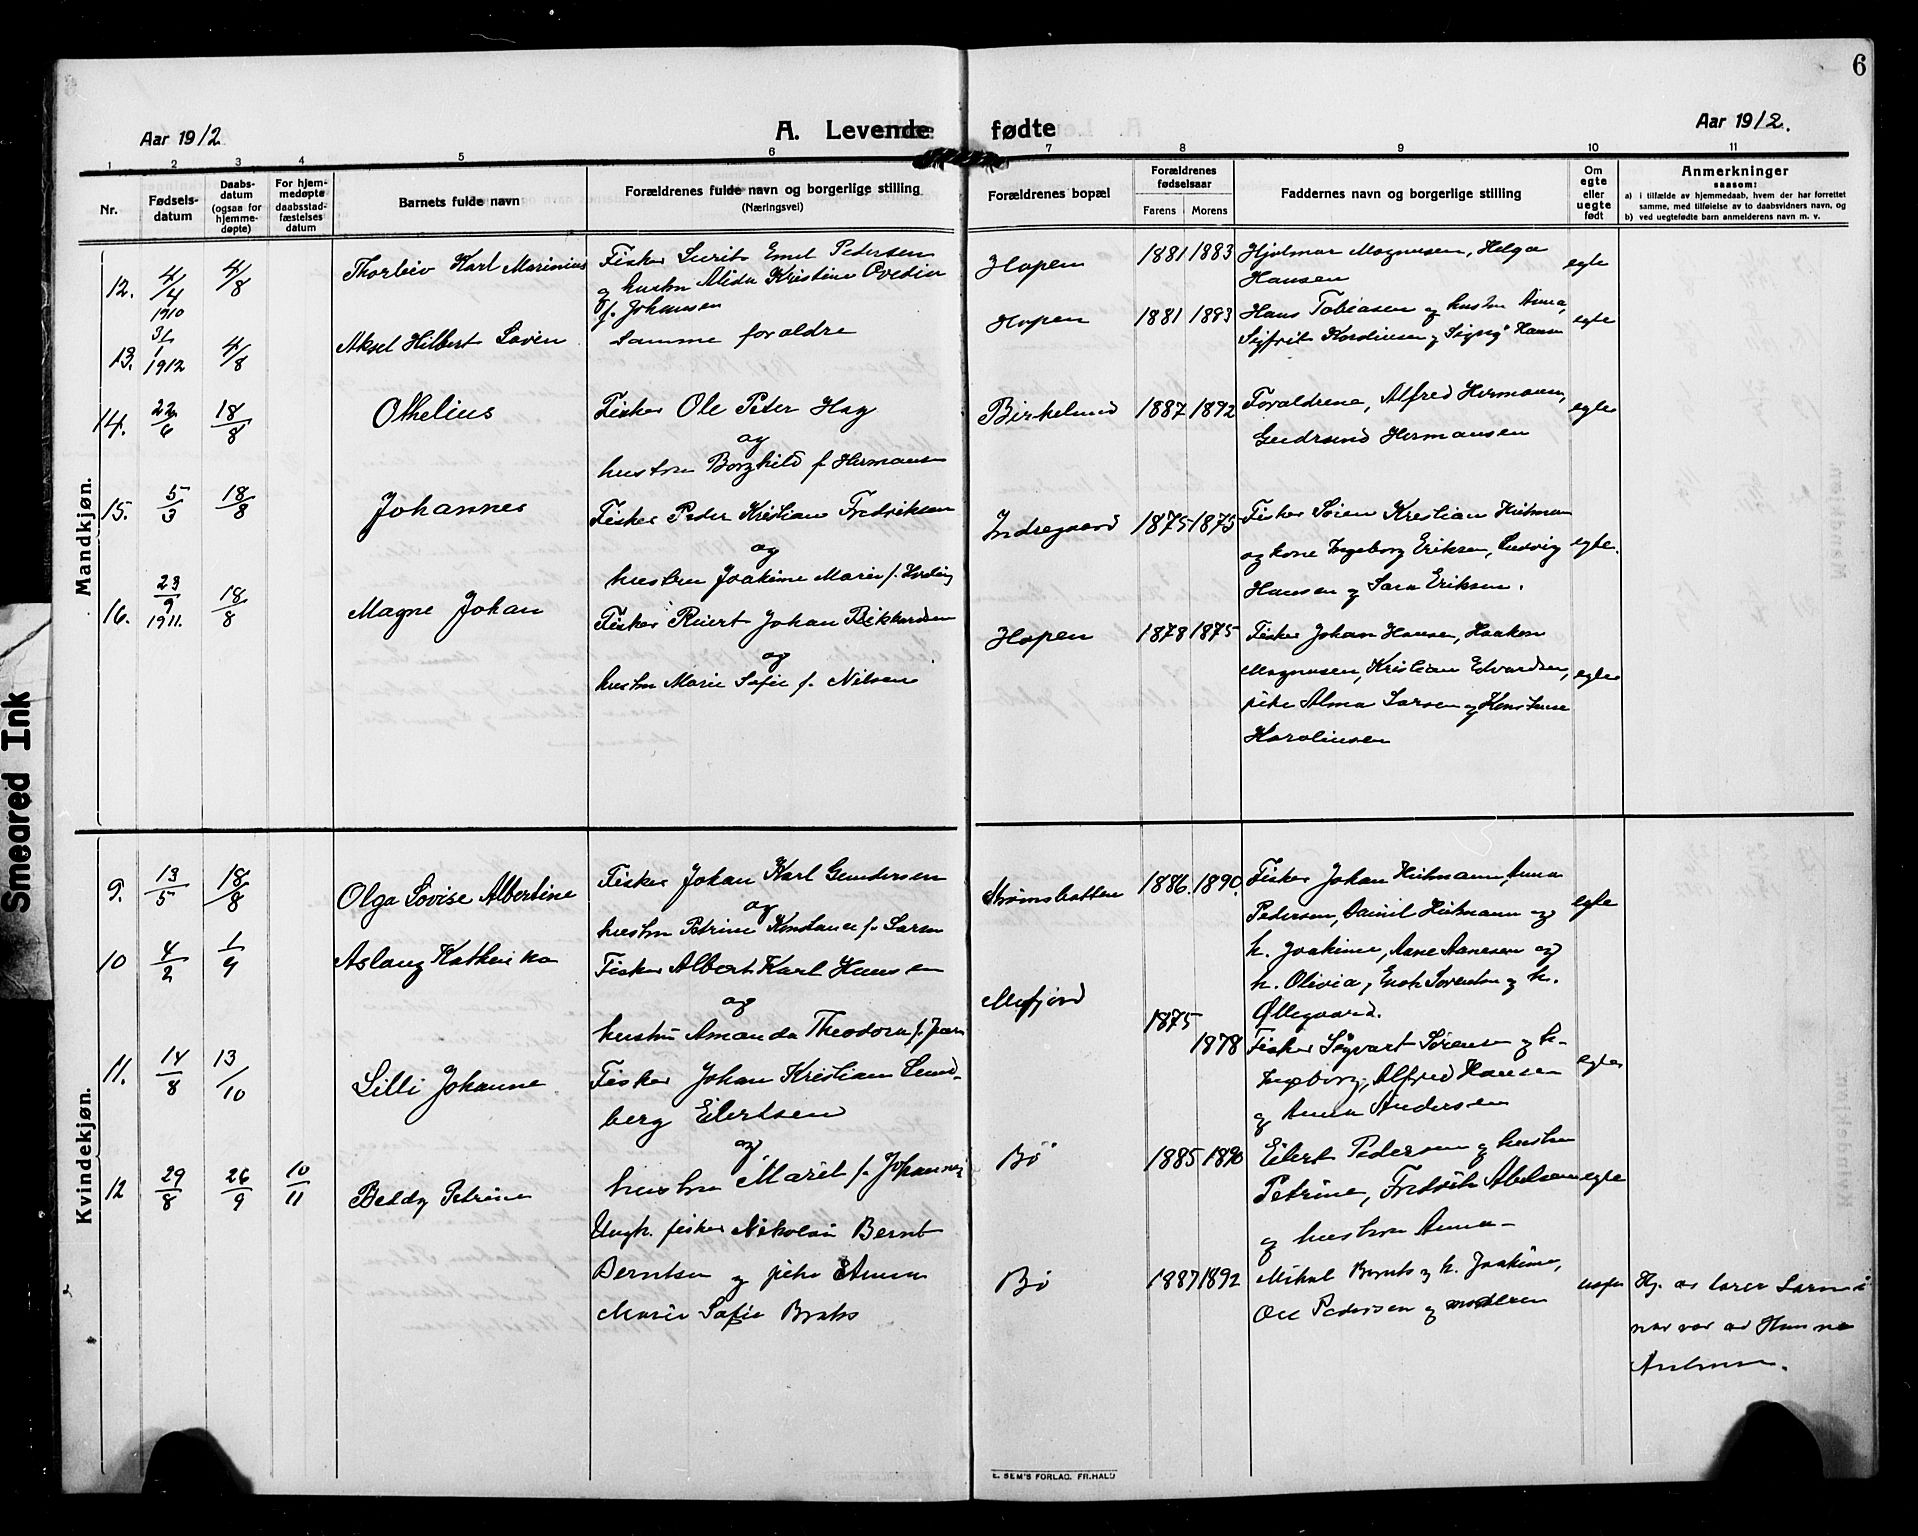 6
Aar 1912
A. Levende fødte
Aar 1912.
1 2 3 4 5 6 7 8 9 10 11
Nr.
Fødsels-
datum
Daabs-
datum
(ogsaa for
hjemme-
døpte)
For hjem-
medøpte
daabsstad-
fæstelses
datum
Barnets fulde navn
Forældrenes fulde navn og borgerlige stilling
(Næringsvei)
Forældrenes bopæl
Forældrenes
fødselsaar
Farens Morens
Faddernes navn og borgerlige stilling
Om
egte
eller
uegte
født
Anmerkninger
saasom:
a) i tilfælde av hjemmedaab, hvem der har forrettet
samme, med tilføielse av to daabsvidners navn, og
b) ved uegtefødte barn anmelderens navn m. v.
Mandkjøn.
12. 4/4 1910 4/8 Karl Marinius
Fisker Emil Pedersen
og hustru Alida Kristine
f. Johansen
Hopen 1881 1883
Hjalmar Magnusen, Helga
Hansen
egte
13. 1912 4/8 Aksel Hilbert
Samme foraldre
Hopen 1881 1883
Hans Tobiasen og hustru Anna,
egte
14. 22/6 18/8 Othelius
Fisker Ole Peter Hag
og
hustru Borghild f Hermansen
Birkelund 1887 1892
Foraldrene, Alfred Hermansen,
Gudrund Hermansen
egte
15. 5/3 18/8 Johannes
Fisker Peder Kristian Fredriksen
og
hustru Joakime Marie f.
Indregaard 1875 1875
Fisker Søren Kristian
og kone Ingeborg Eriksen, Ludvig
Hansen og Sara Eriksen.
egte.
16. 23/9 1911. 18/8 Magne Johan
Fisker Johan Rikkardsen
og
hustru Marie Sofie f. Nilsen
Hopen 1878 1875
Fisker Johan Hansen, Haakon
Magnusen, Kristian Edvardsen,
pike Alma Larsen og
Karolinsen
egte
Kvindekjøn.
9. 13/5 18/8 Olga Lovise Albertine
Fisker Johan Karl Gundersen
og
hustru Petrine Konstance f. Larsen
Strømsbotten 1886. 1890.
Fisker Johan Anna
Pedersen,
h. Joakime, og
h. Olivia, og h.
Øllegaard.
egte
10 4/2 1/9 Aslaug
Fisker Albert Karl Hansen
og
hustru Amanda Theodora f.
Mefjord 1875 1878
Fisker Sigvart Sørensen og h.
Ingeborg, Alfred Hansen
og Anna Andersen
egte
11. 14/8 13/10 Lilli Johanne
Fisker Johan Kristian Lund-
berg Eilertsen
og
hustru Marit f.
Bø 1885 1890
Eilert Pedersen og hustru
Petrine, Fredrik
og hustru Anna
egte
12 29/8 26/9 10/11 Petrine
Ungk. fisker Nikolai Bernt
Berntsen og pike
Marie Sofie
Bø 1887 1892
Mikal og h. Joakime,
Ole Pedersen og moderen
Hj. av lærer
Smeared Ink
E. SEM'S FORLAG. FR.HALD